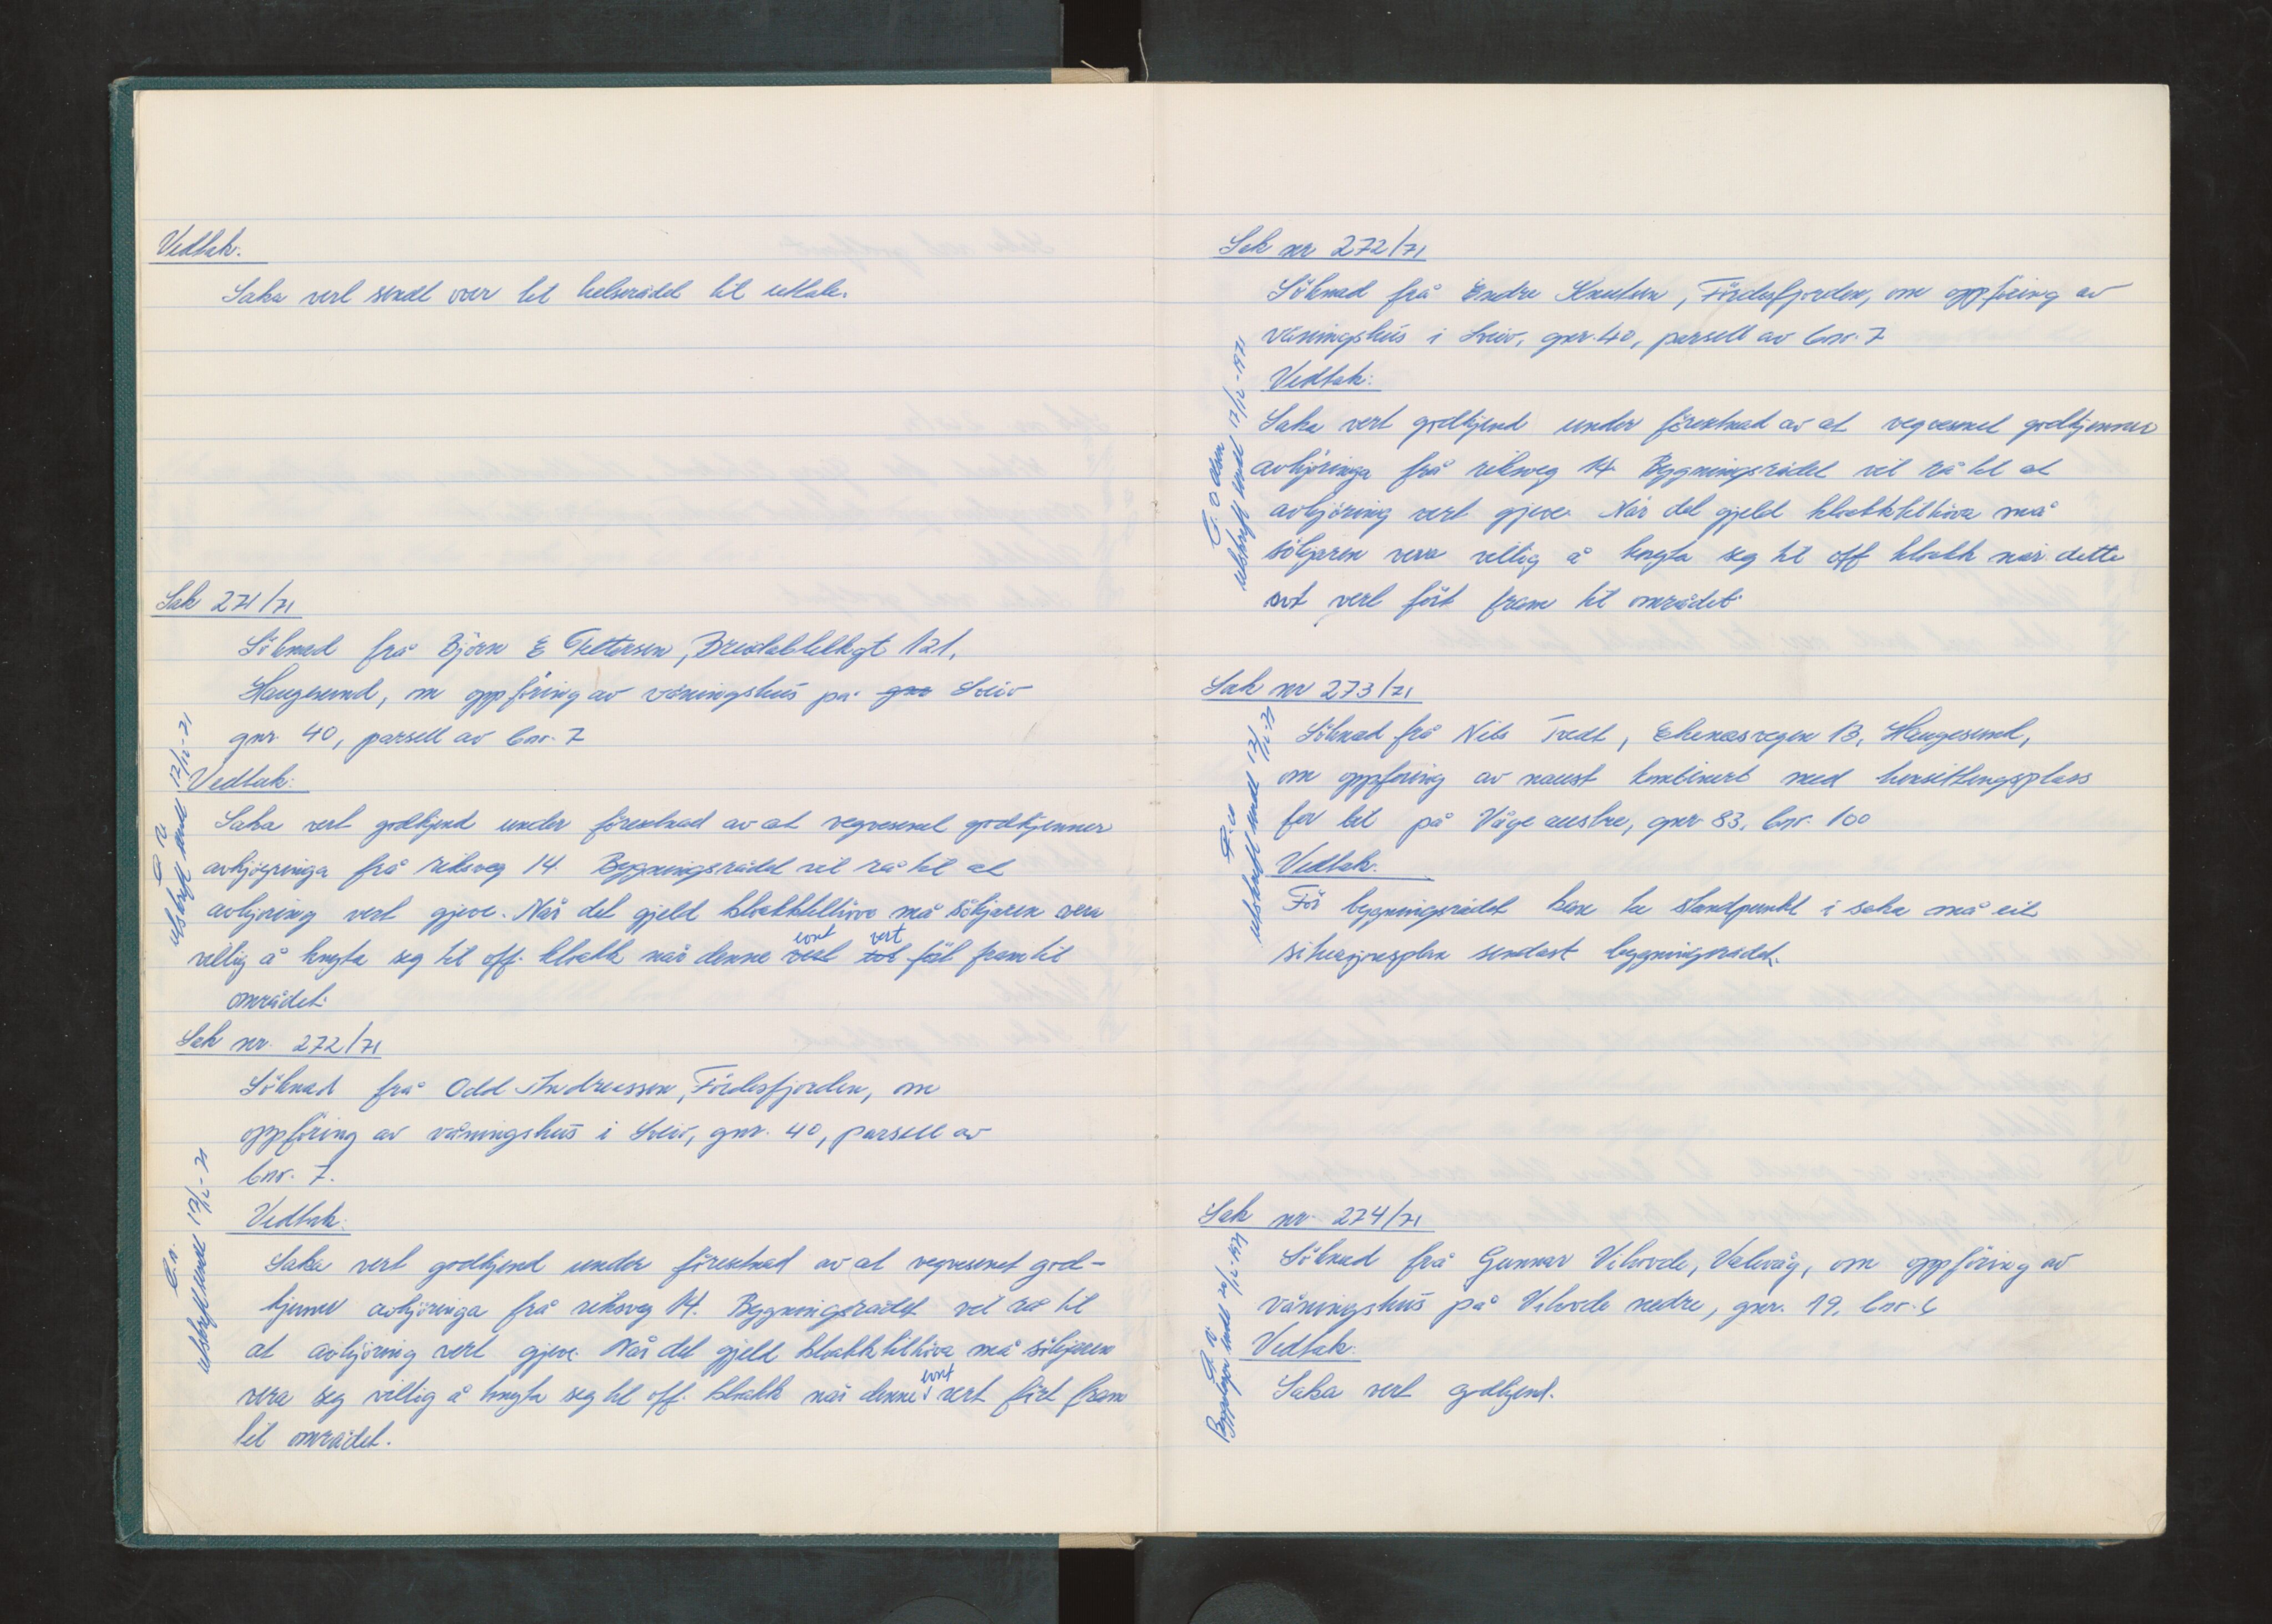 Vedtak.
Saka vert sendt over til helserådet til uttale.
Sak 271/71
Söknad frå Björn E Pettersen, Breidablikkgt 121,
Haugesund, om oppföring av våningshus på gnr Sveio
gnr. 40, parsell av bnr. 7
Vedtak:
Saka vert godkjend under föresetnad av at vegvesenet godkjenner
avkjöyringa frå riksveg 14. Bygningsrådet vil rå til at
avkjöring vert gjeve. Når det gjeld kloakktilhöve må sökjaren vera
villig å knyta seg til off. kloakk når denne vert evnt tot vert fört fram til
området.
utskrift sendt 17/12-71
Sak nr. 272/71
Söknad frå Odd Andreassen, Fördesfjorden, om
oppföring av våningshus i Sveio, gnr. 40, parsell av
bnr. 7.
Vedtak:
Saka vert godkjend under föresetnad av at vegvesenet god-
kjenner avkjöringa frå riksveg 14. Bygningsrådet vil rå til
at avkjöring vert gjeve. Når det gjeld kloakktilhöva må sökjaren
vera seg villig å knyta seg til off. kloakk når denne evnt vert fört fram
til området.
utskrift sendt 17/12-71
Sak nr 272/71
Söknad frå Endre Knutsen, Fördesfjorden, om oppföring av
våningshus i Sveio, gnr. 40, parsell av bnr. 7
Vedtak:
Saka vert godkjend under föresetnad av at vegvesenet godkjenner
avkjöringa frå riksveg 14. Bygningsrådet vil rå til at
avkjöring vert gjeve. Når det gjeld kloakktilhöva må
sökjaren vera villig å knyta seg til off kloakk når dette
evt vert fört fram til området.
utskrift sendt 17/12-1971
Sak nr 273/71
Söknad frå Nils Tvedt, Ekenesvegen 13, Haugesund,
om oppföring av naust kombinert med hensettingsplass
for bil på Våge austre, gnr. 83, bnr. 100
Vedtak.
För bygningsrådet kan ta standpunkt i saka må eit
situasjonsplan sendast bygningsrådet.
utskrift sendt 17/12-71
Sak nr. 274/71
Söknad frå Gunnar Vihovde, Valevåg, om oppföring av
våningshus på Vihovde nedre, gnr. 19, bnr. 6
Vedtak:
Saka vert godkjend.
sendt 20/12-1971